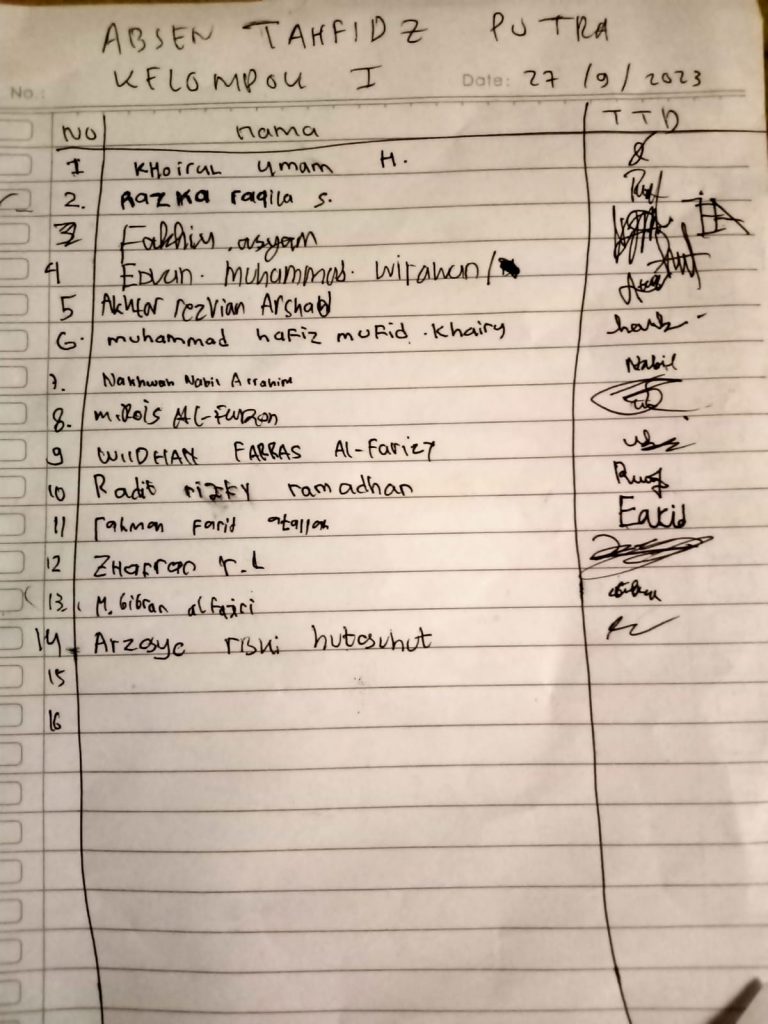 ABSEN TAHFIDZ PUTRA
KELOMPOK I
No.: Date: 27 /9 / 2023
NO nama TTD
1 KHoirul Umam H.
2. RAZKA raqila S.
3 Fakhiy .asyam
4 Edvan. Muhammad. Wirawan/
5 Akhtar rezvian Arshad
6. muhammad hafiz mufid .Khairy
7. Nakhwah Nabil Arrahim Nabil
8. M.Rois AL-Furqon
9 WILDHAN FARRAS Al-Farizy
10 Radit rizky ramadhan
11 rahman Farid atallah Farid
12 ZHAFRAN r.L
13. M. Gibran alfajri
14. riski hutasuhut
15
16